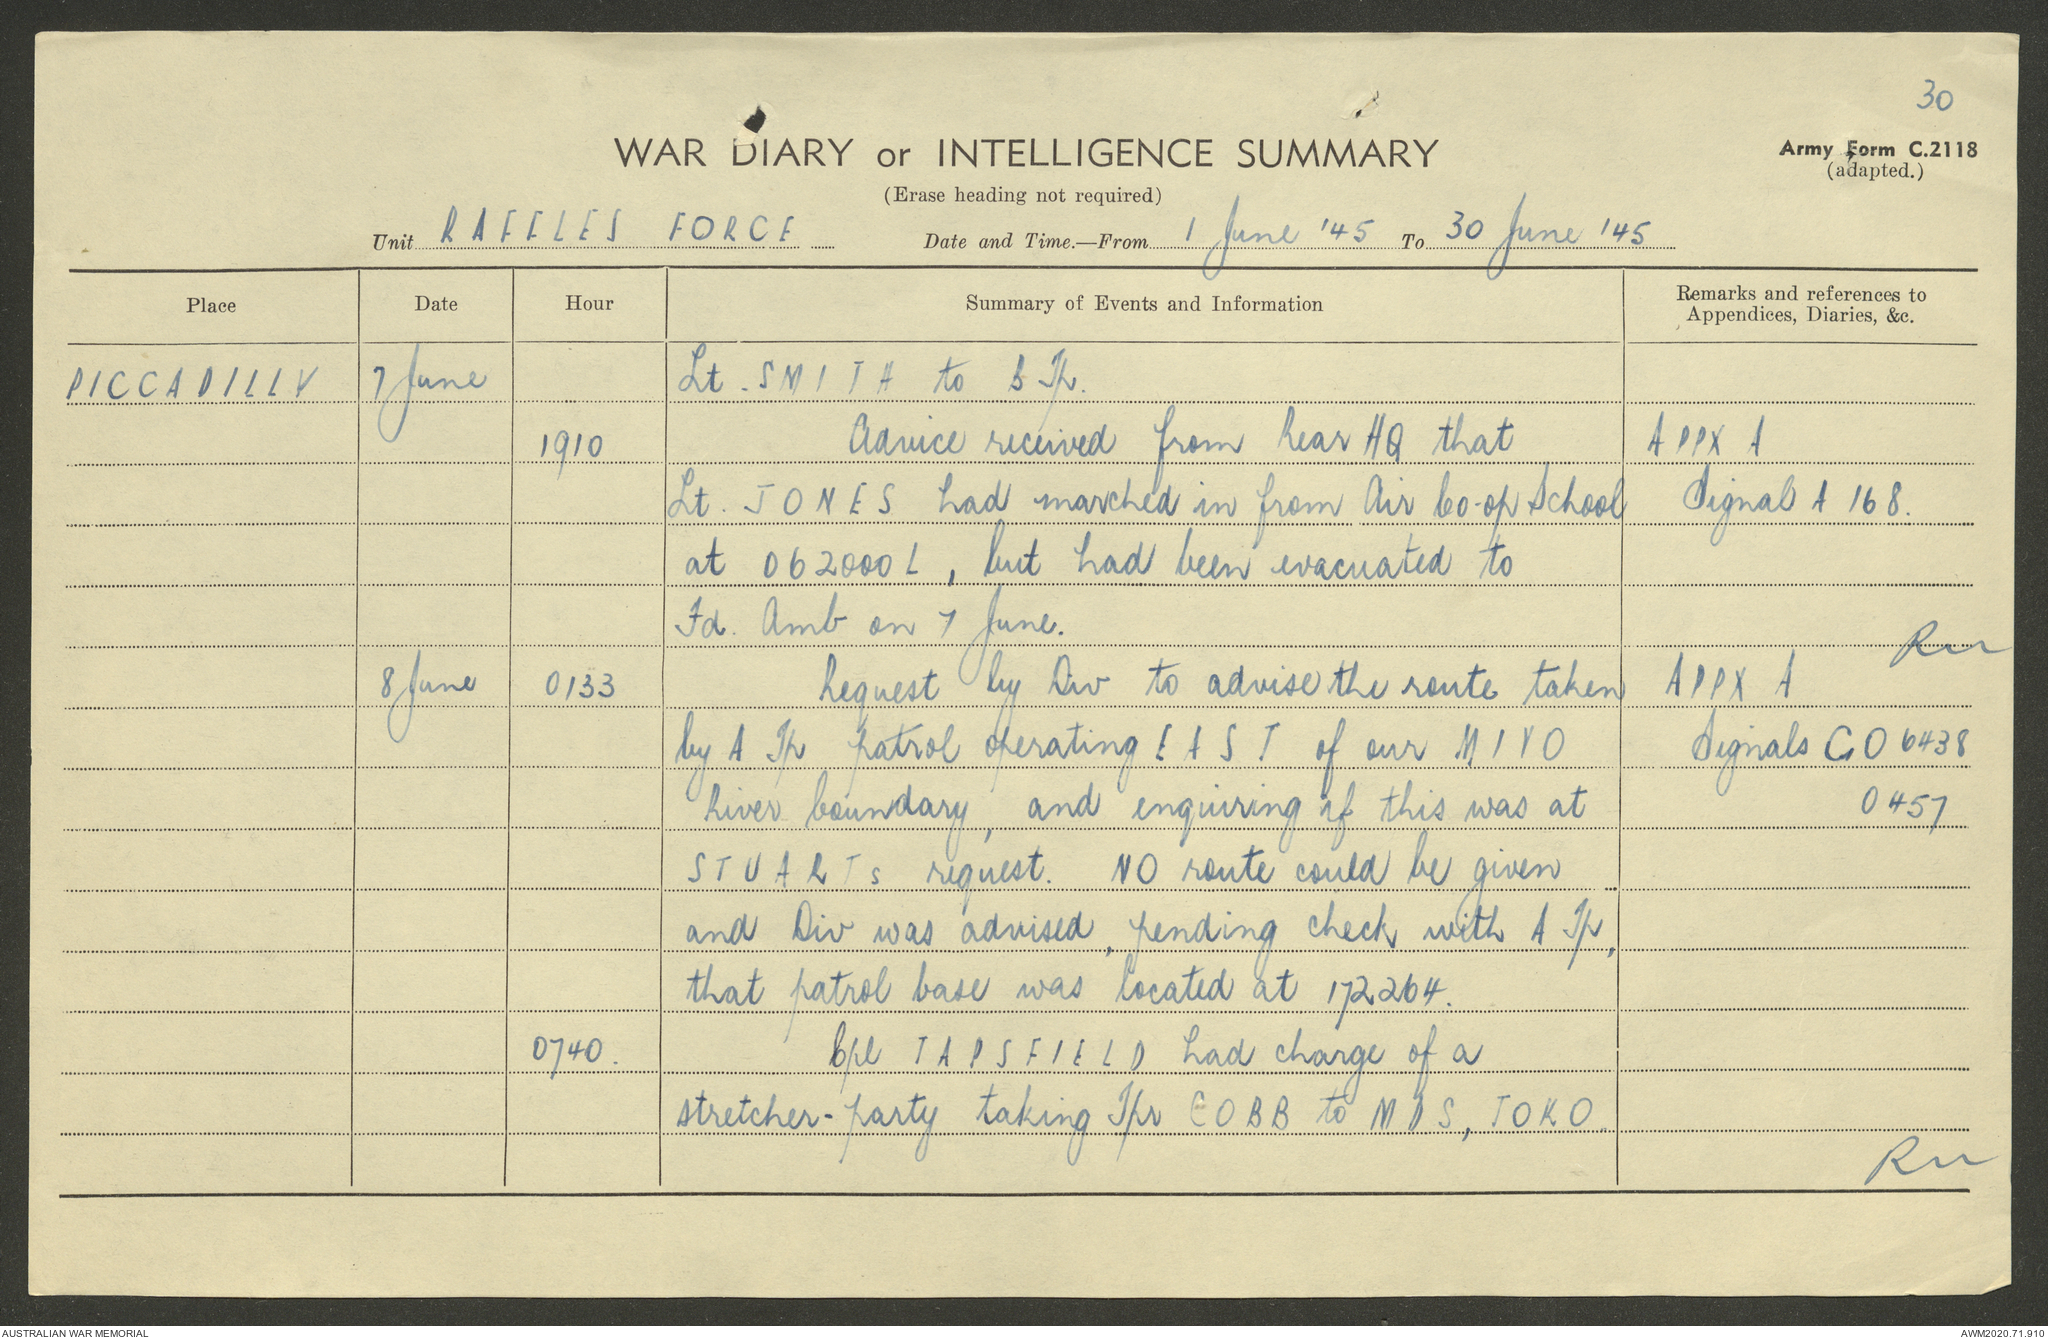 30
WAR DIARY or INTELLIGENCE SUMMARY
Army Form C.2118
(adapted.)
(Erase heading not required)
Unit RAFFLES FORCE Date and Time.—From 1 June '45 To 30 June '45
Place Date Hour Summary of Events and Information Remarks and references to Appendices, Diaries, &c.
PICCADILLY 7 June Lt. SMITH to B Tp.
1910 Advice received from Rear HQ that APPX A
Lt. JONES had marched in from Air Co-op School Signal A 168.
at 062000L, but had been evacuated to
Fd. Amb on 7 June.
8 June 0133 Request by Div to advise the route taken APPX A
by A Tp patrol operating EAST of our MIVO Signals GO 6438
River boundary, and enquiring if this was at 0457
STUARTs request. NO route could be given
and Div was advised, pending check with A Tp,
that patrol base was located at 172264.
0740. Cpl TAPSFIELD had charge of a
stretcher-party taking Tpr COBB to MDS, TOKO.
AUSTRALIAN WAR MEMORIAL
AWM2020.71.910